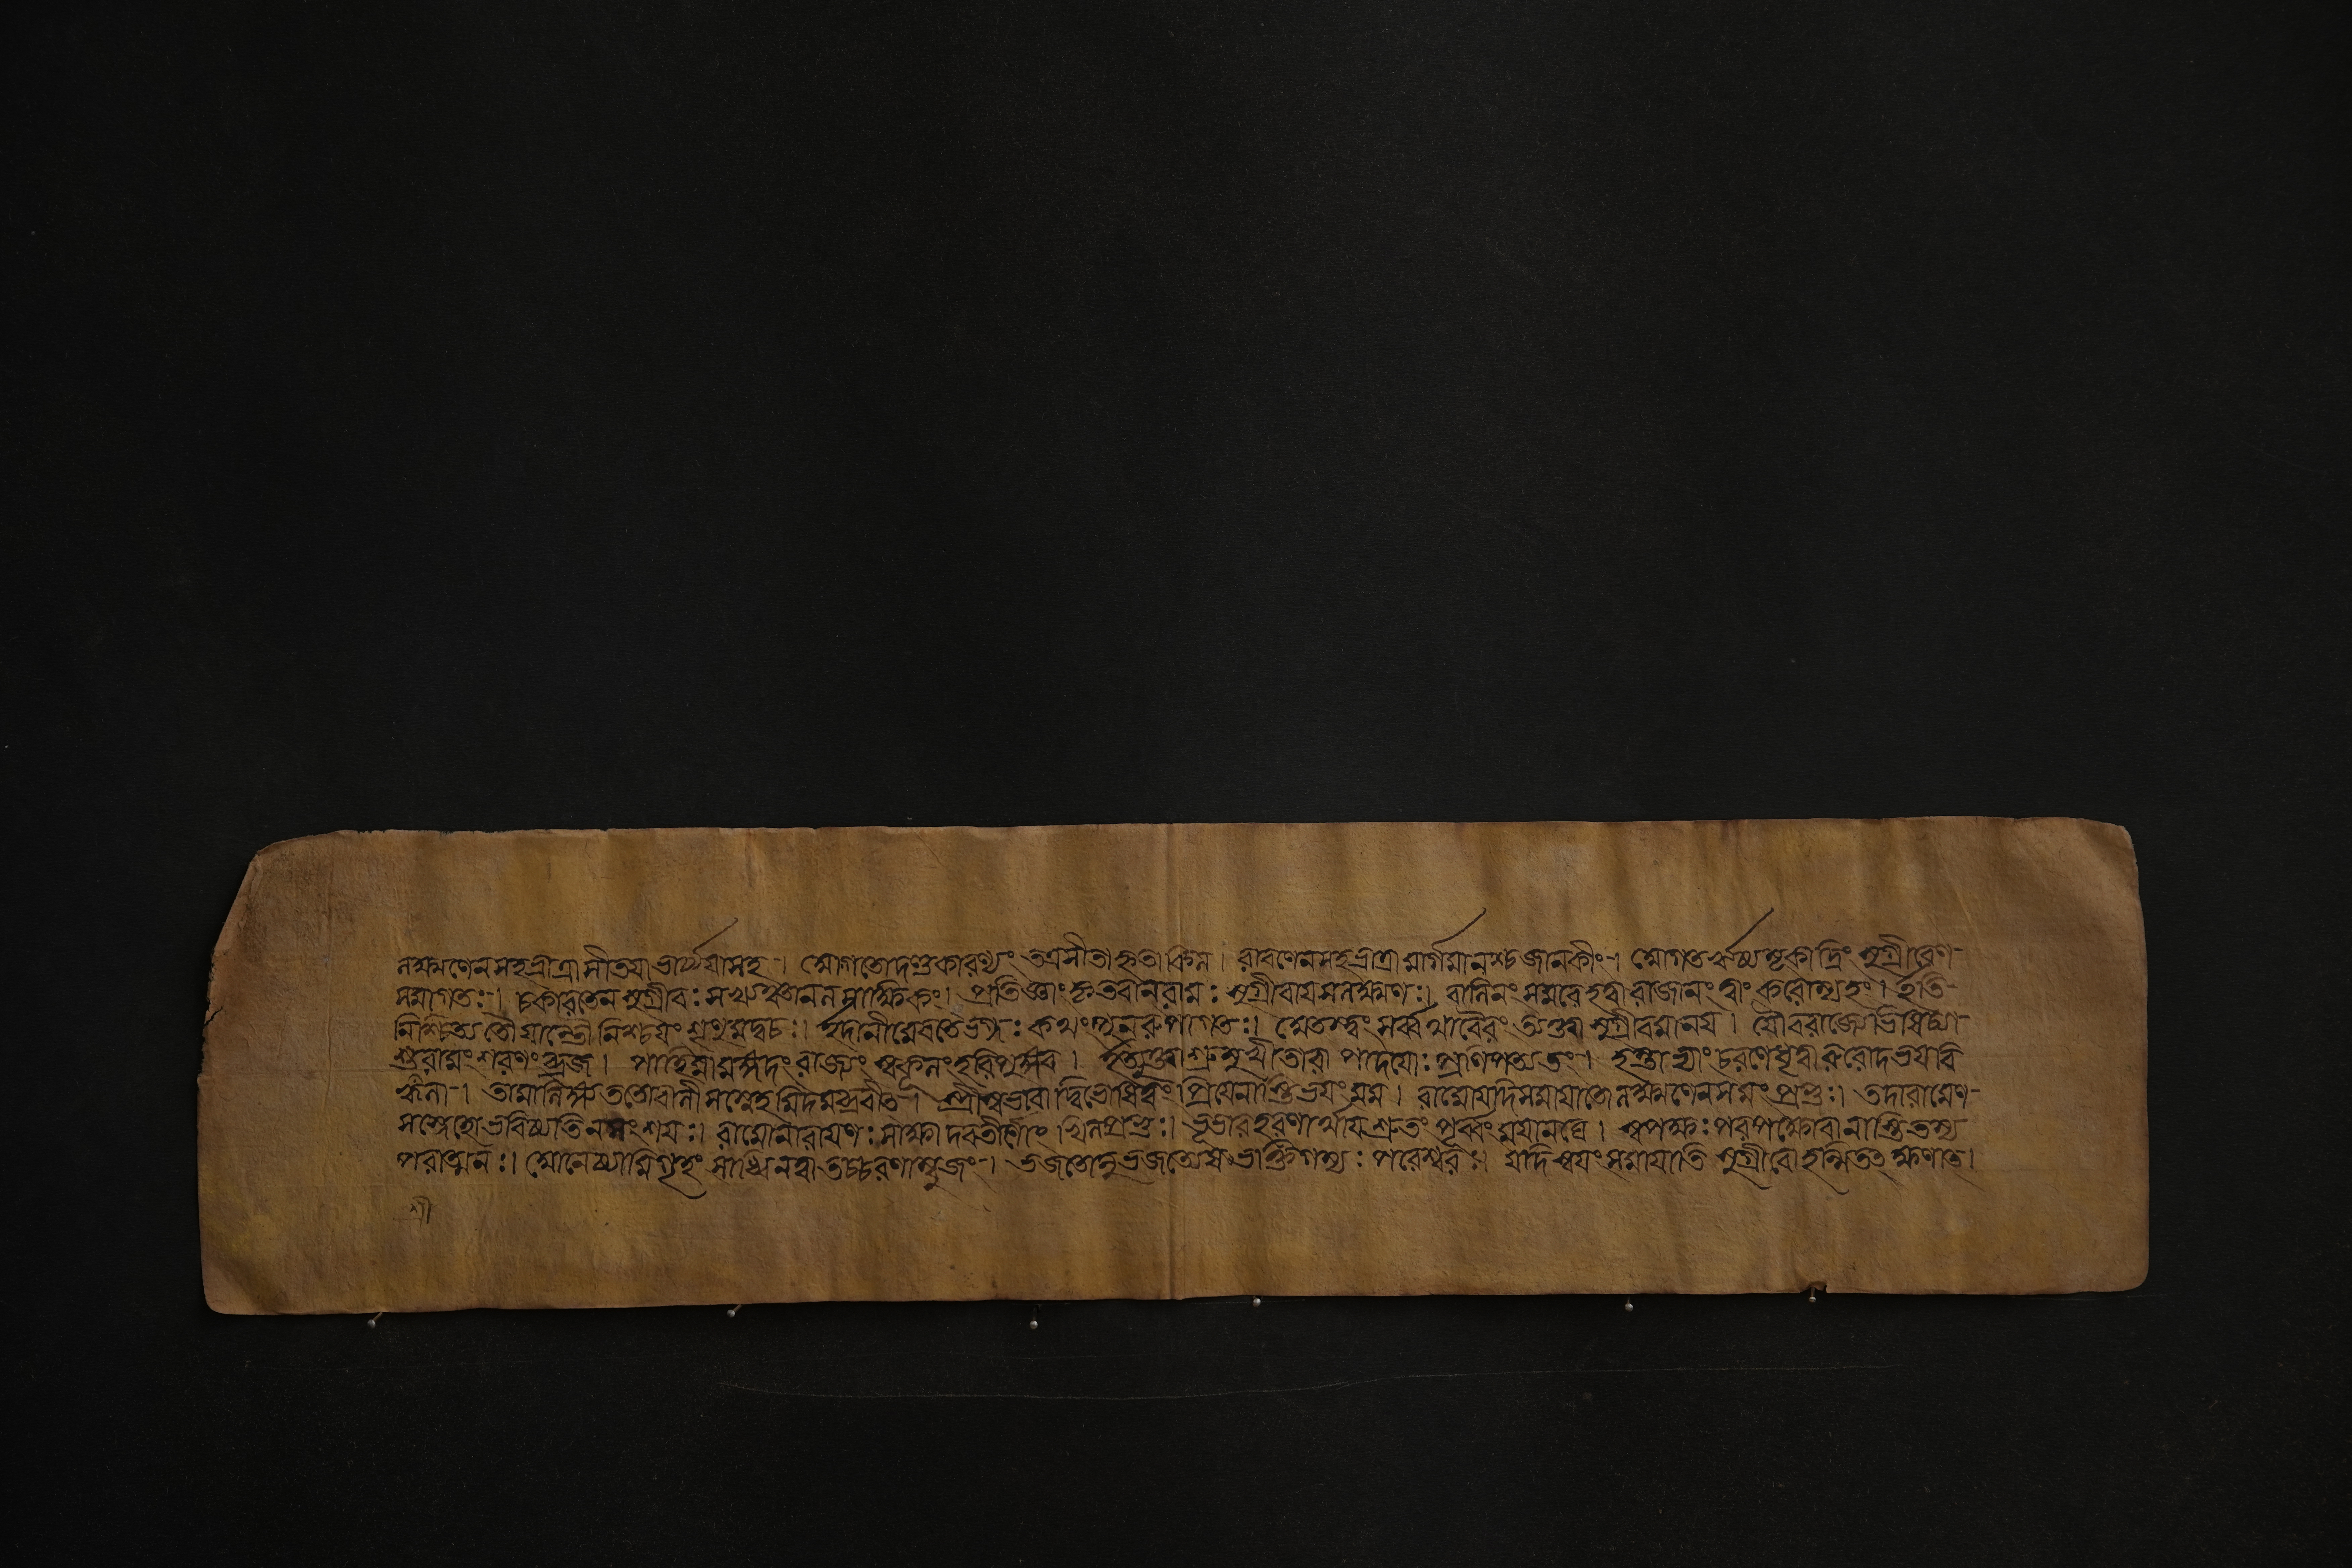 লক্ষ্মণেনসহভ্রাত্রাসীতয়াভার্য্যয়াসহ । আগতোদণ্ডকারণ্যং তত্রসীতাহৃতাকিল । রাবণেনসহভ্রাত্রামার্গমানশ্চজানকীং । আগতঋষ্যমূকাদ্রিং সুগ্রীবেণ
সমাগতঃ । চকারতেন সুগ্রীবঃসখ্যঞ্চানলসাক্ষিকং । প্রতিজ্ঞাং কৃতবান্রামঃ সুগ্রীবায়সলক্ষ্মণঃ । বালিনং সমরেহত্বারাজানং ত্বাং করোম্যহং । ইতি
নিশ্চিত্যতৌয়াতৌনিশ্চয়ং শৃণুমদ্বচঃ । ইদানীমেবতেভগ্নঃ কথং পুনরুপাগতঃ । অতস্ত্বং সর্ব্বথাবৈরং ত্যক্ত্বা সুগ্রীবমানয় । যৌবরাজ্যেভিষিঞ্চা
শুরামং শরণং ব্রজ । পাহিমামঙ্গদং রাজ্যং স্বকুলং হরিপুঙ্গব । ইত্যুক্ত্বাশ্রুমুখীতারা পাদয়োঃপ্রণিপত্যতং । হস্তাভ্যাং চরণৌধৃত্বারুরোদভয়বি
হ্বলা । তামালিঙ্গ্যততোবালীসস্নেহমিদমব্রবীৎ । স্ত্রীস্বভাবাদ্বিভেষিত্বং প্রিয়েনাস্তিভয়ং মম । রামোযদিসমায়াতোলক্ষ্মণেনসমং প্রভুঃ । তদারামেণ
সস্নেহোভবিষ্যতিনসংশয়ঃ । রামোনারায়ণঃসাক্ষাদবতীর্ণোখিলপ্রভুঃ । ভূভারহরণার্থায়শ্রুতং পূর্ব্বং ময়ানঘে । স্বপক্ষঃপরপক্ষোবানাস্তিতস্য
পরাত্মনঃ । আনেষ্যামিগৃহং সাধ্বিনত্বাতচ্চরণাম্বুজং । ভজতোনুভজত্যেষভক্তিগম্যঃ পরেশ্বরঃ । যদিস্বয়ং সমায়াতি সুগ্রীবোহন্মিতত্ ক্ষণাত্ ।
শ্রী